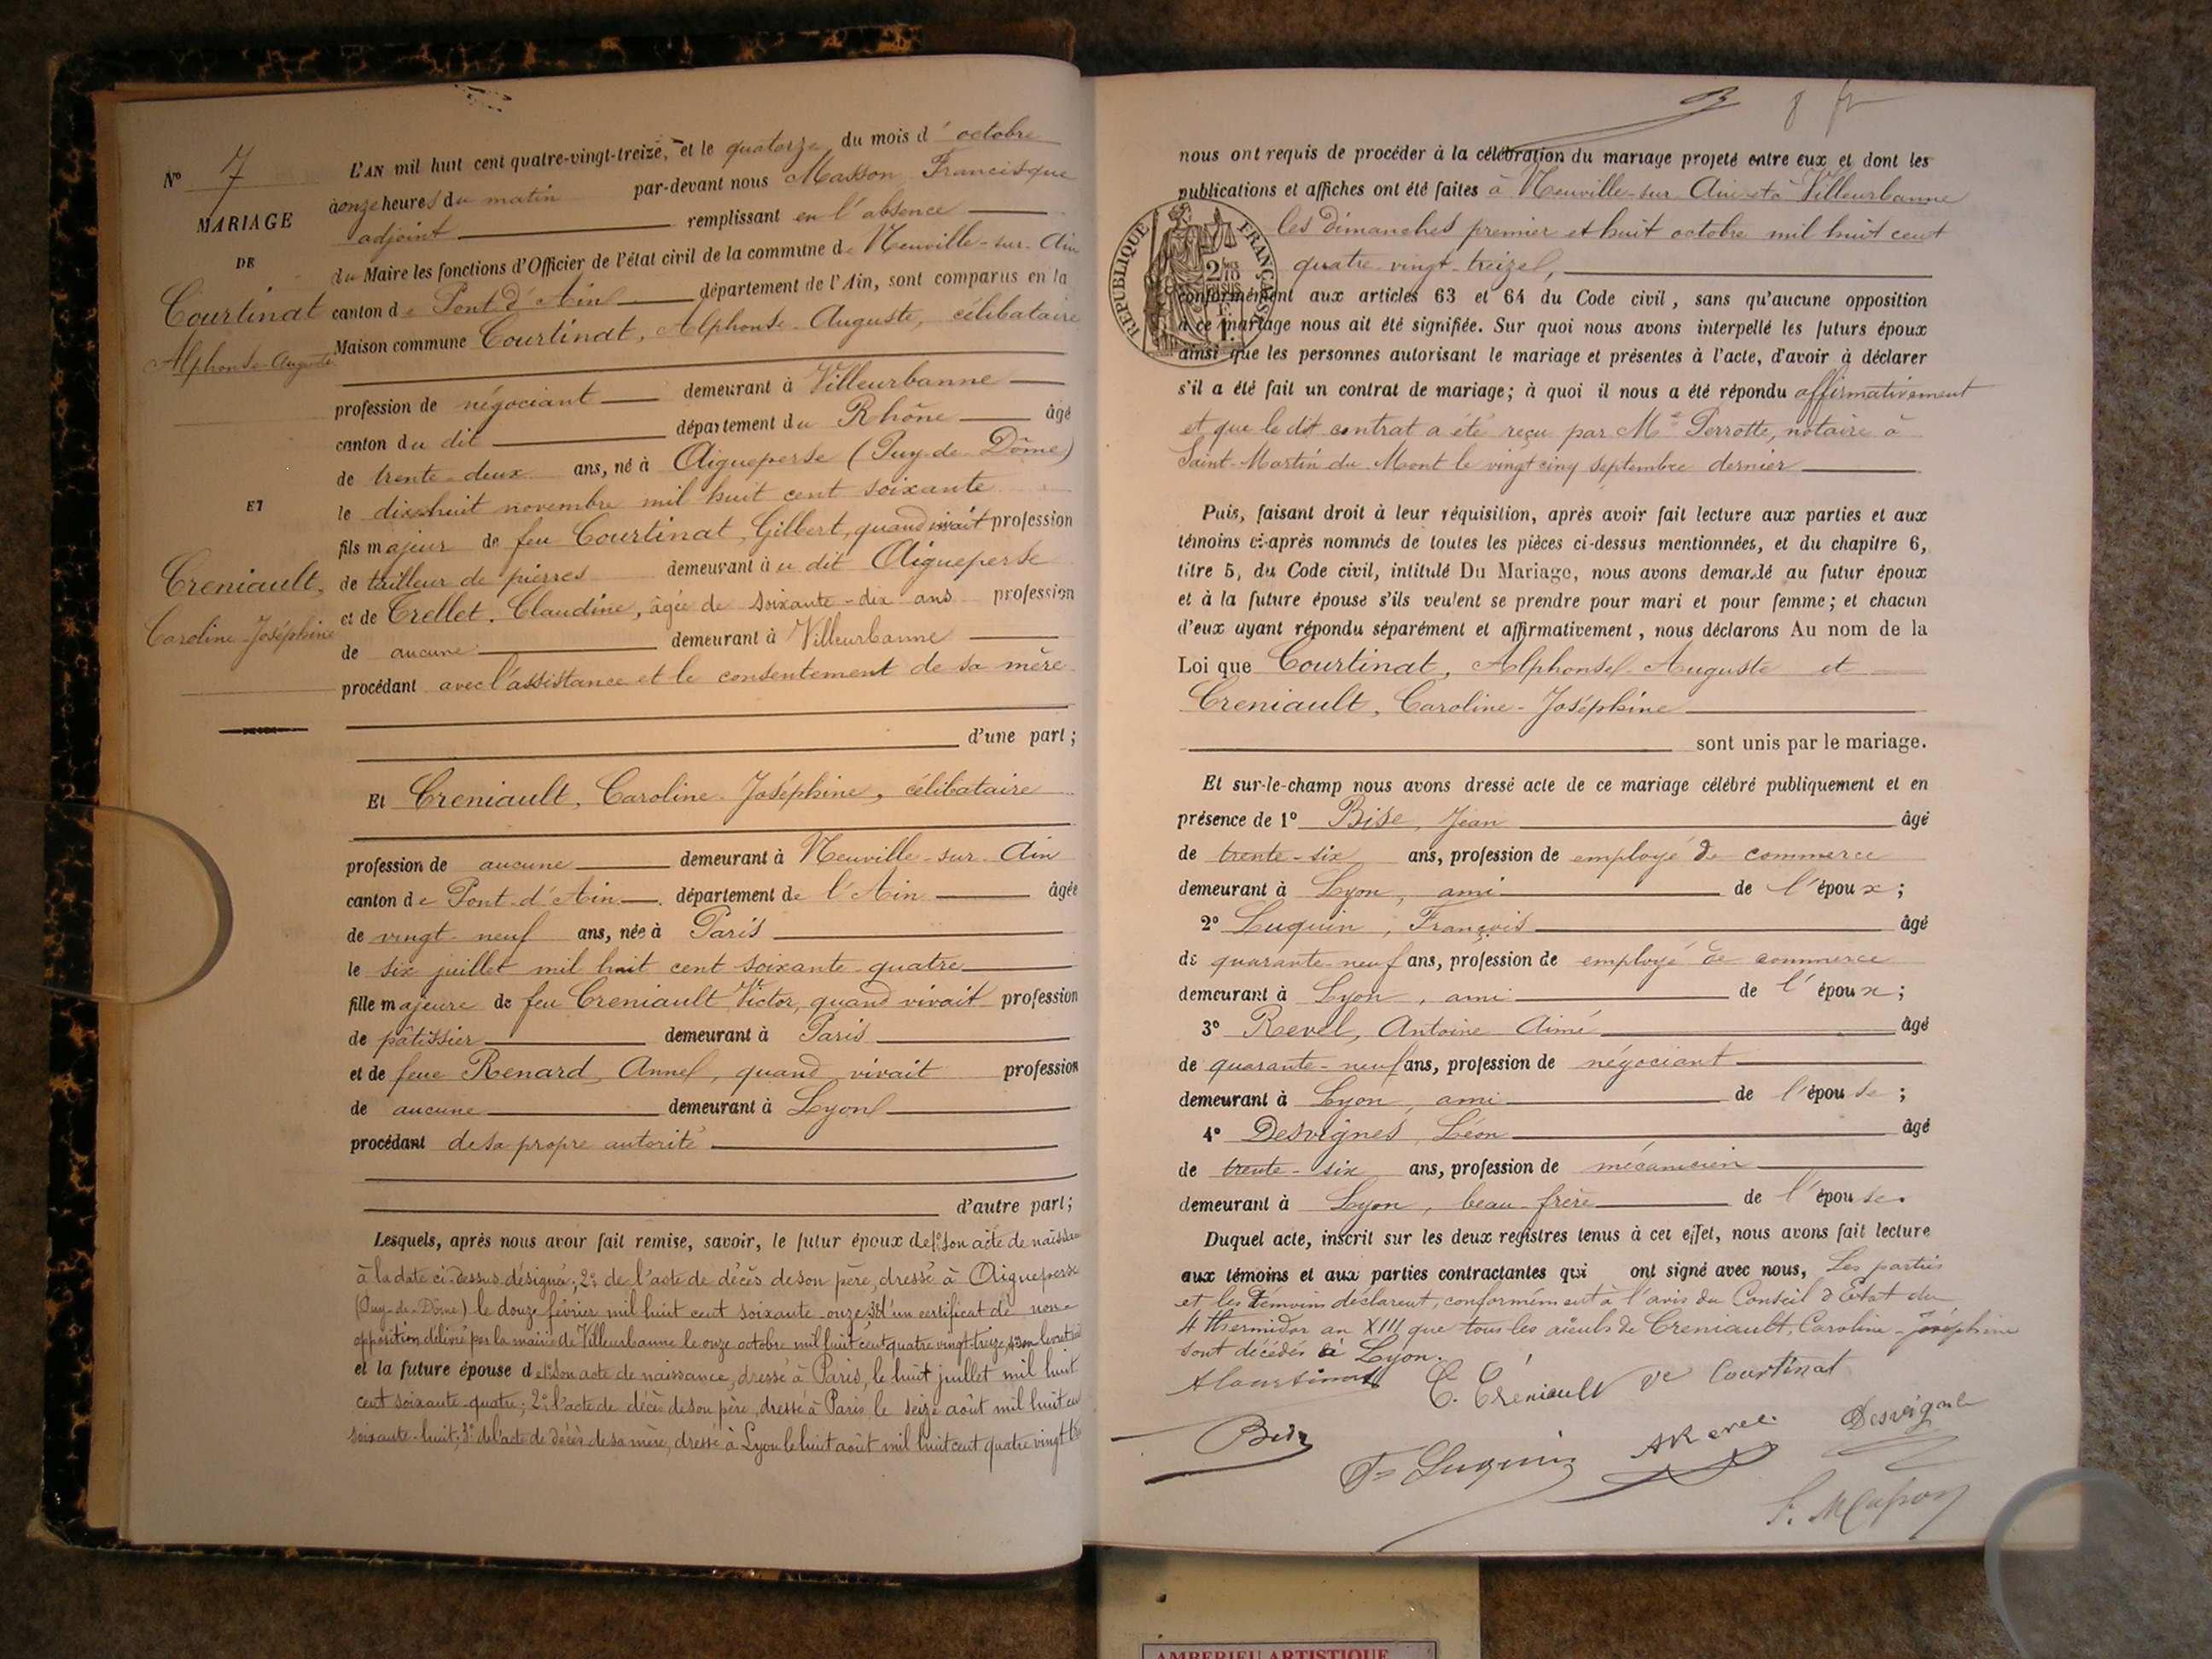 N° 7
MARIAGE
DE
Courtinat
Alphonse-Auguste
ET
Creniault,
Caroline-Joséphine
L'AN mil huit cent quatre-vingt-treize, et le quatorze du mois d'octobre
à onze heures du matin par-devant nous Masson, Francisque
adjoint remplissant en l'absence
du Maire les fonctions d'Officier de l'état civil de la commune de Neuville-sur-Ain
canton de Pont d'Ain département de l'Ain, sont comparus en la
Maison commune Courtinat, Alphonse-Auguste, célibataire
profession de négociant demeurant à Villeurbanne
canton du dit département du Rhône âgé
de trente-deux ans, né à Aigueperse (Puy-de-Dôme)
le dix-huit novembre mil huit cent soixante
fils majeur de feu Courtinat, Gilbert, quand vivait profession
de tailleur de pierres demeurant à u dit Aigueperse
et de Trellet, Claudine, âgée de soixante-dix ans profession
de aucune demeurant à Villeurbanne
procédant avec l'assistance et le consentement de sa mère
d'une part;
Et Creniault, Caroline-Joséphine, célibataire
profession de aucune demeurant à Neuville-sur-Ain
canton de Pont-d'Ain département de l'Ain âgée
de vingt-neuf ans, née à Paris
le six juillet mil huit cent soixante-quatre
fille majeure de feu Creniault Victor, quand vivait profession
de pâtissier demeurant à Paris
et de feue Renard, Anne, quand vivait profession
de aucune demeurant à Lyon
procédant de sa propre autorité
d'autre part;
Lesquels, après nous avoir fait remise, savoir, le futur époux de 1° son acte de naissance
à la date ci-dessus désignée; 2° de l'acte de décès de son père, dressé à Aigueperse
(Puy-de-Dôme) le douze février mil huit cent soixante-onze; 3° d'un certificat de non-
opposition délivré par la mairie de Villeurbanne le onze octobre mil huit cent quatre vingt-treize, 4° son livret
et la future épouse de 1° son acte de naissance, dressé à Paris, le huit juillet mil huit
cent soixante-quatre; 2° l'acte de décès de son père, dressé à Paris le seize août mil huit cent
soixante-huit; 3° de l'acte de décès de sa mère, dressé à Lyon le huit août mil huit cent quatre vingt
nous ont requis de procéder à la célébration du mariage projeté entre eux et dont les
publications et affiches ont été faites à Neuville-sur-Ain et à Villeurbanne
les dimanches premier et huit octobre mil huit cent
quatre-vingt-treize,
RÉPUBLIQUE FRANÇAISE
conformément aux articles 63 et 64 du Code civil, sans qu'aucune opposition
à ce mariage nous ait été signifiée. Sur quoi nous avons interpellé les futurs époux
ainsi que les personnes autorisant le mariage et présentes à l'acte, d'avoir à déclarer
s'il a été fait un contrat de mariage; à quoi il nous a été répondu affirmativement
et que le dit contrat a été reçu par Me Perrotte, notaire à
Saint-Martin du Mont le vingt cinq septembre dernier
Puis, faisant droit à leur réquisition, après avoir fait lecture aux parties et aux
témoins ci-après nommés de toutes les pièces ci-dessus mentionnées, et du chapitre 6,
titre 5, du Code civil, intitulé Du Mariage, nous avons demandé au futur époux
et à la future épouse s'ils veulent se prendre pour mari et pour femme; et chacun
d'eux ayant répondu séparément et affirmativement, nous déclarons Au nom de la
Loi que Courtinat, Alphonse-Auguste et
Creniault, Caroline-Joséphine
sont unis par le mariage.
Et sur-le-champ nous avons dressé acte de ce mariage célébré publiquement et en
présence de 1° Bise, Jean âgé
de trente-six ans, profession de employé de commerce
demeurant à Lyon, ami de l'époux;
2° Luquin, François âgé
de quarante-neuf ans, profession de employé de commerce
demeurant à Lyon, ami de l'époux;
3° Revel, Antoine Aimé âgé
de quarante-neuf ans, profession de négociant
demeurant à Lyon, ami de l'épouse;
4° Desvignes, Léon âgé
de trente-six ans, profession de mécanicien
demeurant à Lyon, beau-frère de l'épouse.
Duquel acte, inscrit sur les deux registres tenus à cet effet, nous avons fait lecture
aux témoins et aux parties contractantes qui ont signé avec nous, Les parties
et les témoins déclarent, conformément à l'avis du Conseil d'Etat du
4 thermidor an XIII que tous les aïeuls de Creniault, Caroline-Joséphine
sont décédés à Lyon.
ACourtinat C. Créniault Ve Courtinat
Bise Fs Luquin ARevel Desvignes
F. Masson
AMBERIEU ARTISTIQUE